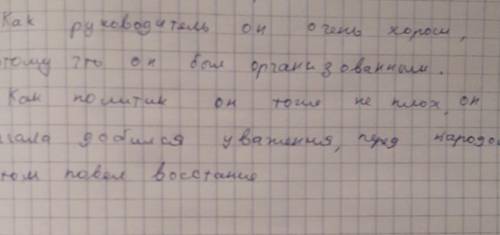 Как руководитель он очень хорош,
тому что он был организованным.
Как политик он тоже не плох, он
чала добился уважения, перед народо
том повел восстание